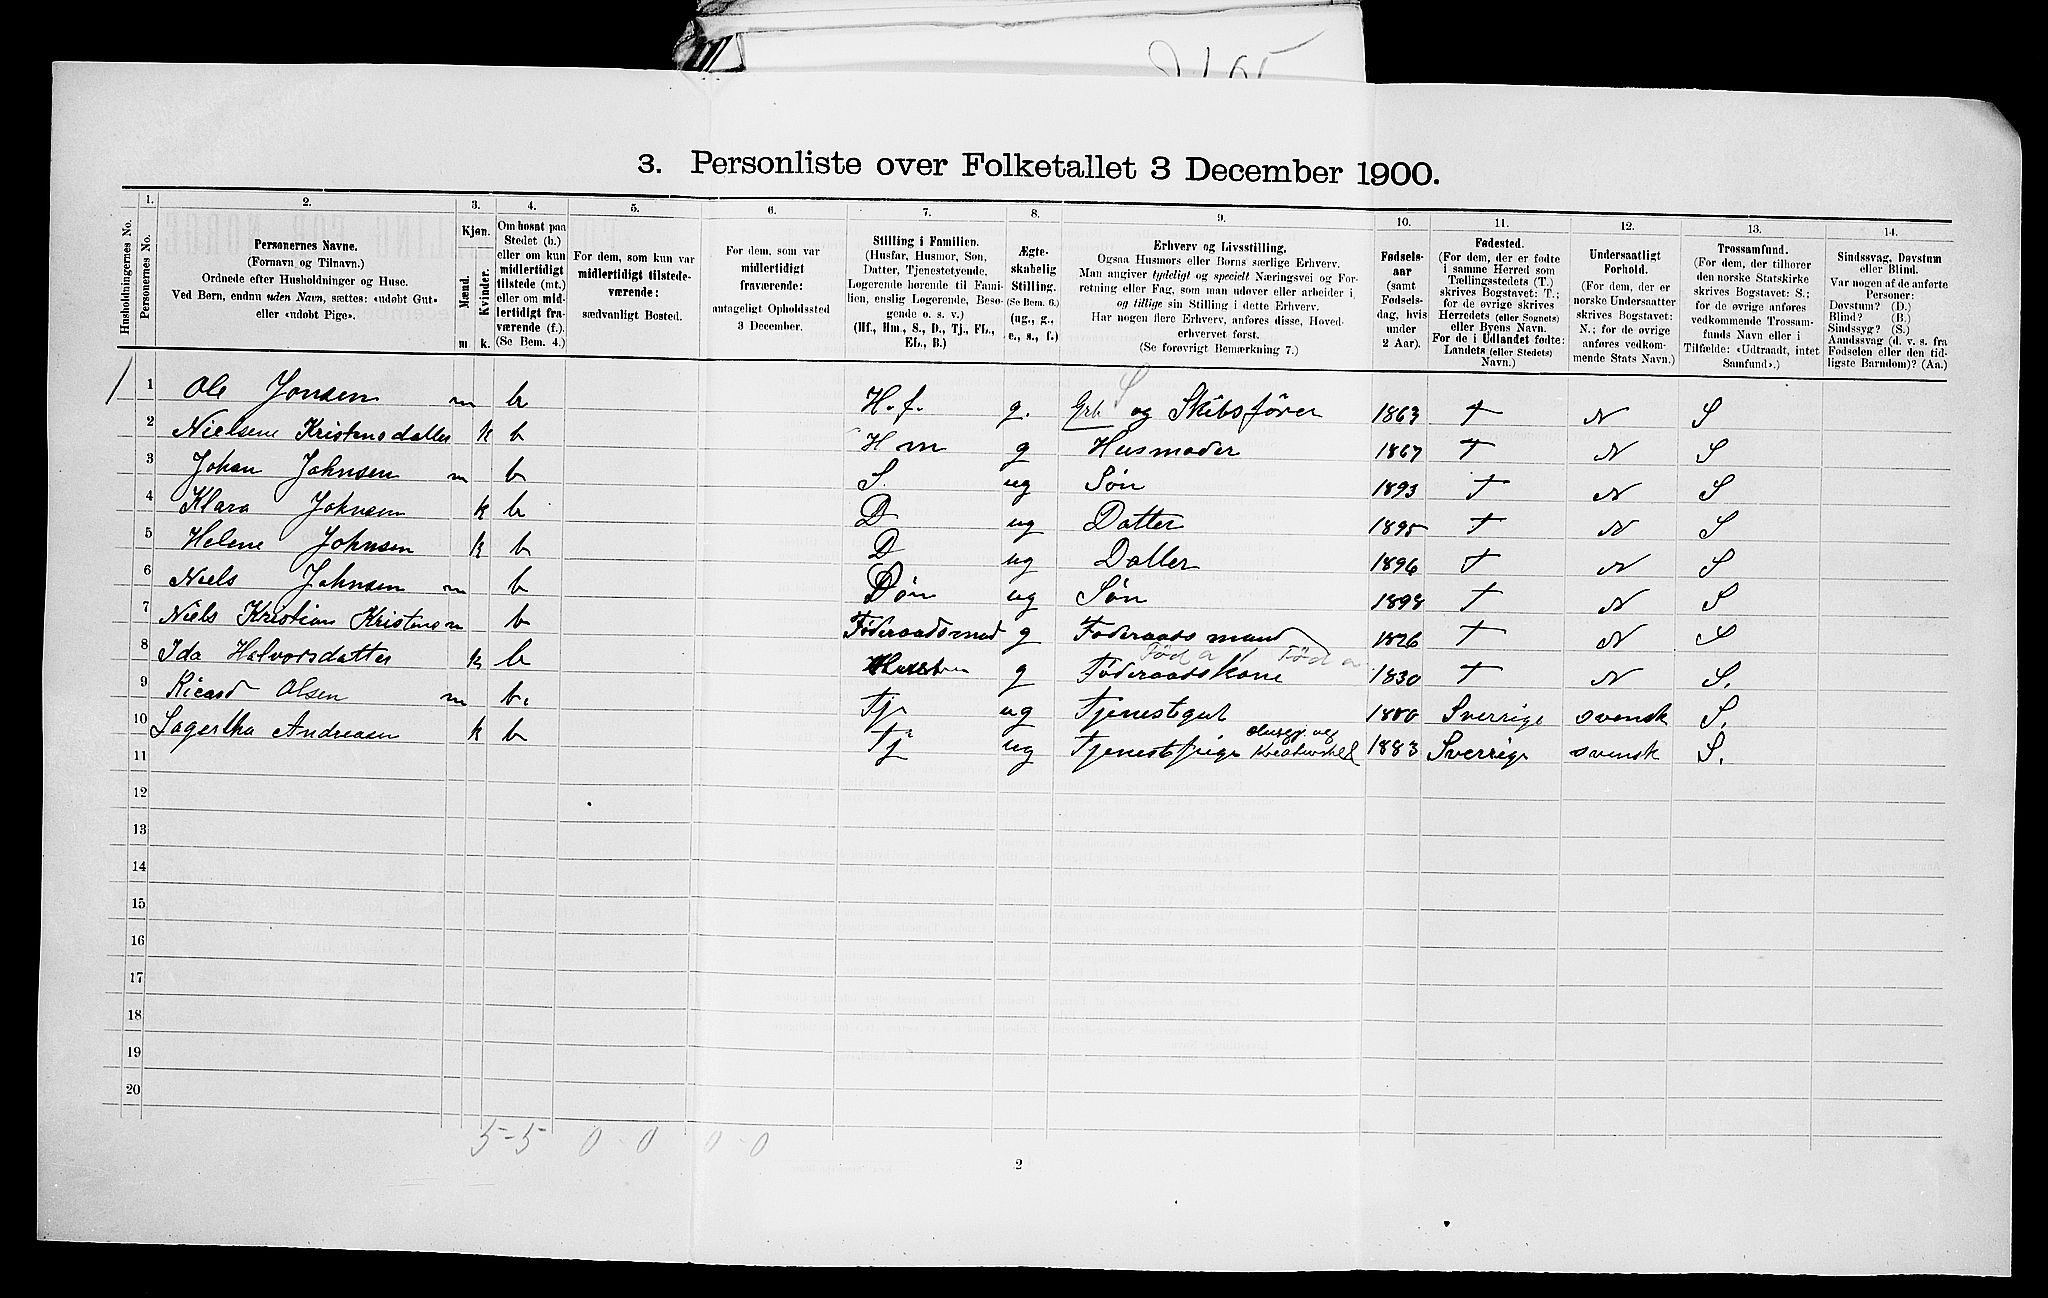 3. Personliste over Folketallet 3 December 1900.
Husholdningernes No.
1. Personernes No.
2. Personernes Navne.
(Fornavn og Tilnavn.)
Ordnede efter Husholdninger og Huse.
Ved Børn, endnu uden Navn, sættes: «udøbt Gut»
eller «udøbt Pige».
3. Kjøn.
Mænd. Kvinder.
m k.
4. Om bosat paa
Stedet (b.)
eller om kun
midlertidigt
tilstede (mt.)
eller om mid-
lertidigt fra-
værende (f.).
(Se Bem. 4.)
5. For dem, som kun var
midlertidigt tilstede-
værende:
sædvanligt Bosted.
6. For dem, som var
midlertidigt
fraværende:
antageligt Opholdssted
3 December.
7. Stilling i Familien.
(Husfar, Husmor, Søn,
Datter, Tjenestetyende,
Logerende hørende til Fami-
lien, enslig Logerende, Besø-
gende o. s. v.)
(Hf., Hm., S., D., Tj., FL.,
EL., B.)
8. Ægte-
skabelig
Stilling.
(Se Bem. 6.)
(ug., g.,
e., s., f.)
9. Erhverv og Livsstilling.
Ogsaa Husmors eller Børns særlige Erhverv.
Man angiver tydeligt og specielt Næringsvei og For-
retning eller Fag, som man udøver eller arbeider i,
og tillige sin Stilling i dette Erhverv.
Har nogen flere Erhverv, anføres disse, Hoved-
erhvervet først.
(Se forøvrigt Bemærkning 7.)
10. Fødsels-
aar
(samt
Fødsels-
dag, hvis
under
2 Aar).
11. Fødested.
(For dem, der er fødte
i samme Herred som
Tællingsstedets (T.)
skrives Bogstavet: T.;
for de øvrige skrives
Herredets (eller Sognets)
eller Byens Navn.
For de i Udlandet fødte:
Landets (eller Stedets)
Navn.)
12. Undersaatligt
Forhold.
(For dem, der er
norske Undersaatter
skrives Bogstavet:
N.; for de øvrige
anføres vedkom-
mende Stats Navn.)
13. Trossamfund.
(For dem, der tilhører
den norske Statskirke
skrives Bogstavet: S.;
for de øvrige anføres
vedkommende Trossam-
funds Navn eller i
Tilfælde: «Udtraadt, intet
Samfund».)
14. Sindssvag, Døvstum
eller Blind.
Var nogen af de anførte
Personer:
Døvstum? (D.)
Blind? (B.)
Sindssyg? (S.)
Aandssvag (d. v. s. fra
Fødselen eller den tid-
ligste Barndom)? (Aa.)
1 1 Ole Jonsen m b H.f. g. Grb S og Skibsfører 1863 T N S
2 Nielsene Kristensdatter k b Hm g Husmoder 1867 T N S
3 Johan Johnsen m b S. ug Søn 1893 T N S
4 Klara Johnsen k b D ug Datter 1895 T N S
5 Helene Johnsen k b D ug Datter 1896 T N S
6 Niels Johnsen m b Søn ug Søn 1898 T N S
7 Niels Kristian Kristens m b Føderaadsmnd g Føderaadsmand 1826 T N S
8 Ida Halvorsdatter k b g Føderaadskone 1830 T N S.
9 Ricard Olsen m b. Tj ug Tjenestegut 1880 Sverrige svensk S.
10 Lagertha Andreasen k b Tj ug Tjenestepige Husgj. og Kreaturstel 1883 Sverrige svensk S.
11
12
13
14
15
16
17
18
19
20
5-5 0-0 0-0
2